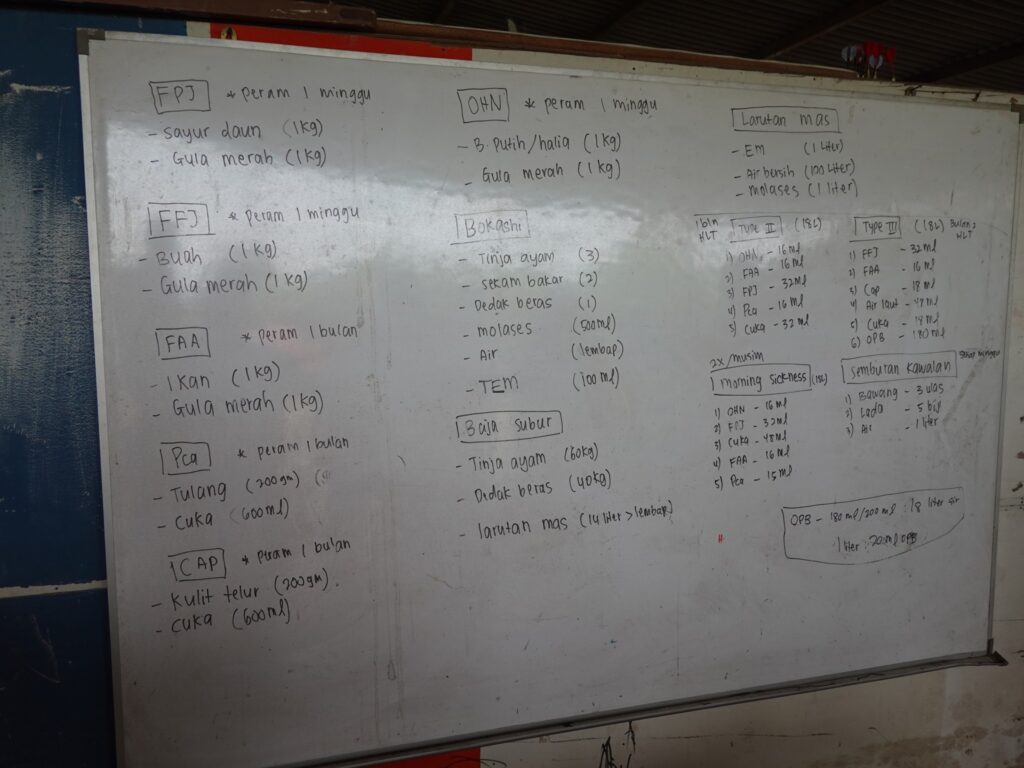 FPJ * peram 1 minggu
- sayur daun (1kg)
- Gula merah (1kg)
FFJ * peram 1 minggu
- Buah (1kg)
- Gula merah (1kg)
FAA * peram 1 bulan
- Ikan (1kg)
- Gula merah (1kg)
Pca * peram 1 bulan
- Tulang (200gm)
- cuka (600ml)
CAP * peram 1 bulan
- Kulit telur (200gm)
- cuka (600ml)
OHN * peram 1 minggu
- B. Putih/halia (1kg)
- Gula merah (1kg)
Bokashi
- Tinja ayam (3)
- sekam bakar (2)
- Dedak beras (1)
- molases (500ml)
- Air (lembap)
- TEM (100ml)
Baja subur
- Tinja ayam (60kg)
- Dedak beras (40kg)
- larutan mas (14 liter > lembap)
Larutan mas
- EM (1 liter)
- Air bersih (100 liter)
- molases (1 liter)
1 bln HLT Type II (18L)
1) OHN - 16ml
2) FAA - 16ml
3) FPJ - 32ml
4) Pca - 16ml
5) Cuka - 32ml
Type III (18L) Bulan 2 HLT
1) FFJ - 32ml
2) FAA - 16ml
3) Cap - 18ml
4) Air laut - 47ml
5) Cuka
6) OPB - 180ml
2x/musim
morning sickness (18L)
1) OHN - 16ml
2) FPJ - 32ml
3) Cuka - 48ml
4) FAA - 16ml
5) Pca - 15ml
semburan kawalan minggu
1) Bawang - 3 ulas
2) Lada - 5 biji
3) Air - 1 liter
OPB - 180ml/200ml : 18 liter air
1 liter : 200ml OPB